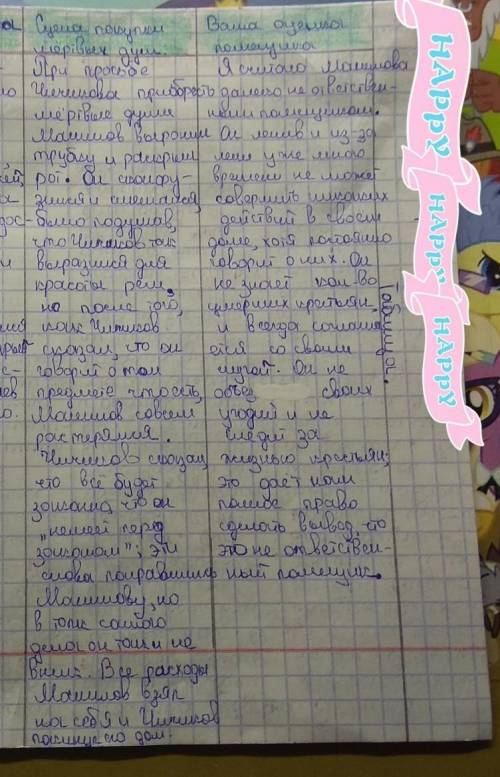 Сцена покупки
мёртвых душ.
При просьбе
Чичикова приобрести
мёртвые души
Манилов выронил
трубку и раскрыл
рот. Он сконфу-
зился и смешался,
было подумав,
что Чичиков так
выразился для
красоты речи,
но после того,
как Чичиков
сказал, что он
говорит о том
предмете что есть,
Манилов совсем
растерялся.
Чичиков сказал,
что всё будет
законно, что он
"немеет перед
законом"; эти
слова понравились
Манилову, но
в толк самого
дела он так и не
вник. Все расходы
Манилов взял
на себя и Чичиков
покинул его дом.
Ваша оценка
помещика
Я считаю Манилова
далеко не ответствен-
ным помещиком.
Он ленив и из-за
лени уже много
времени не может
совершить никаких
действий в своём
доме, хотя постоянно
говорит о них. Он
не знает кол-во
умерших крестьян,
и всегда соглаша
ется со своим
слугой. Он не
объез своих
угодий и не
следит за
жизнью крестьян;
это даёт нам
полное право
сделать вывод, что
это не ответствен-
ный помещик.
Таблица.
HAPPY
HAPPY
HAPPY